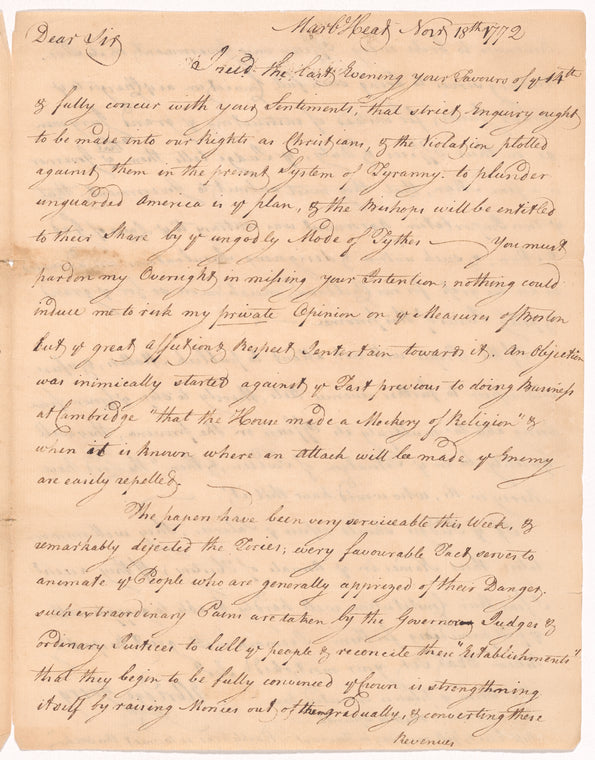 Marb.Head Novr 18th 1772
Dear Sir
I recd the last Evening your Favours of ye 14th
& fully concur with your Sentiments, "that strict Enquiry ought
to be made into our Rights as Christians, & the Violation plotted
against them in the present System of Tyranny. to plunder
unguarded America is ye plan, & the Bishops will be entitled
to their Share by ye ungodly Mode of Tythes — You must
pardon my Oversight in missing your Intention; nothing could
induce me to risk my private Opinion on ye Measures of Boston
but ye great Affection & Respect I entertain towards it. An Objection
was inimically started against ye Fast previous to doing Business
at Cambridge "that the House made a Mockery of Religion" &
when it is known where an attack will be made ye Enemy
are easily repelled.
The papers have been very serviceable this Week, &
remarkably dejected the Tories; every favourable Fact serves to
animate ye People who are generally apprized of their Danger.
such extraordinary Pains are taken by the Governor Judges &
ordinary Justices to lull ye people & reconcile these "Establishments"
that they begin to be fully convinced ye Crown is strengthning
itself by raising Monies out of them gradually, & converting these
Revenues